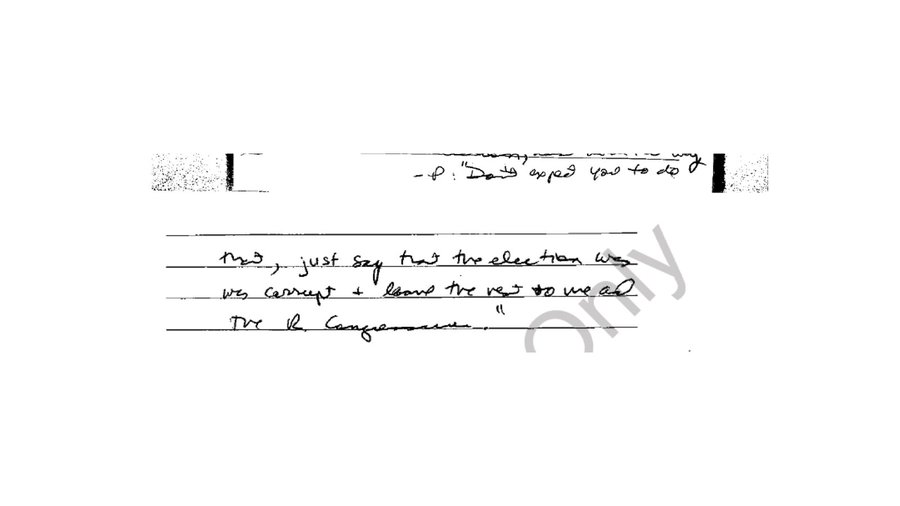 - P: "Don't expect you to do
that, just say that the election was
was corrupt + leave the rest to me and
the R. Congressmen."
Only